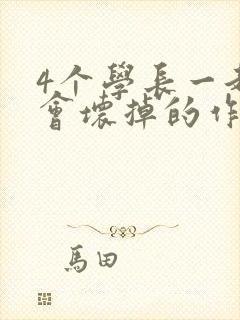 4个學長一
會壞掉的作
馬田